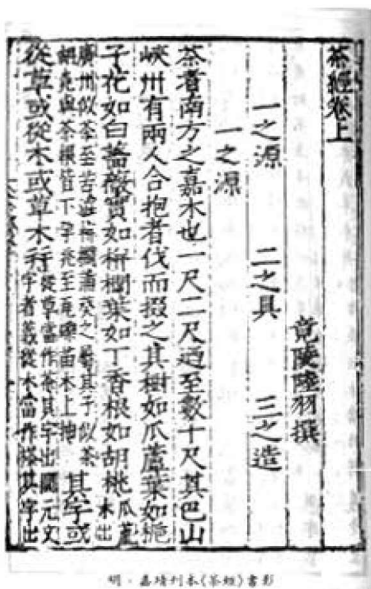 茶經卷上
竟陵陸羽撰
一之源 二之具 三之造
一之源
茶者南方之嘉木也一尺二尺迺至數十尺其巴山
峽州有兩人合抱者伐而掇之其樹如瓜蘆葉如梔
子花如白薔薇實如栟櫚葉如丁香根如胡桃瓜蘆木出
廣州似茶至苦澁栟櫚蒲葵之屬其子似茶
胡桃與茶根皆下孕兆至瓦礫苗木上抽其字或
從草或從木或草木并從草當作茶其字出開元文
字音義從木當作㮈其字出
明·嘉靖刊本《茶經》書影